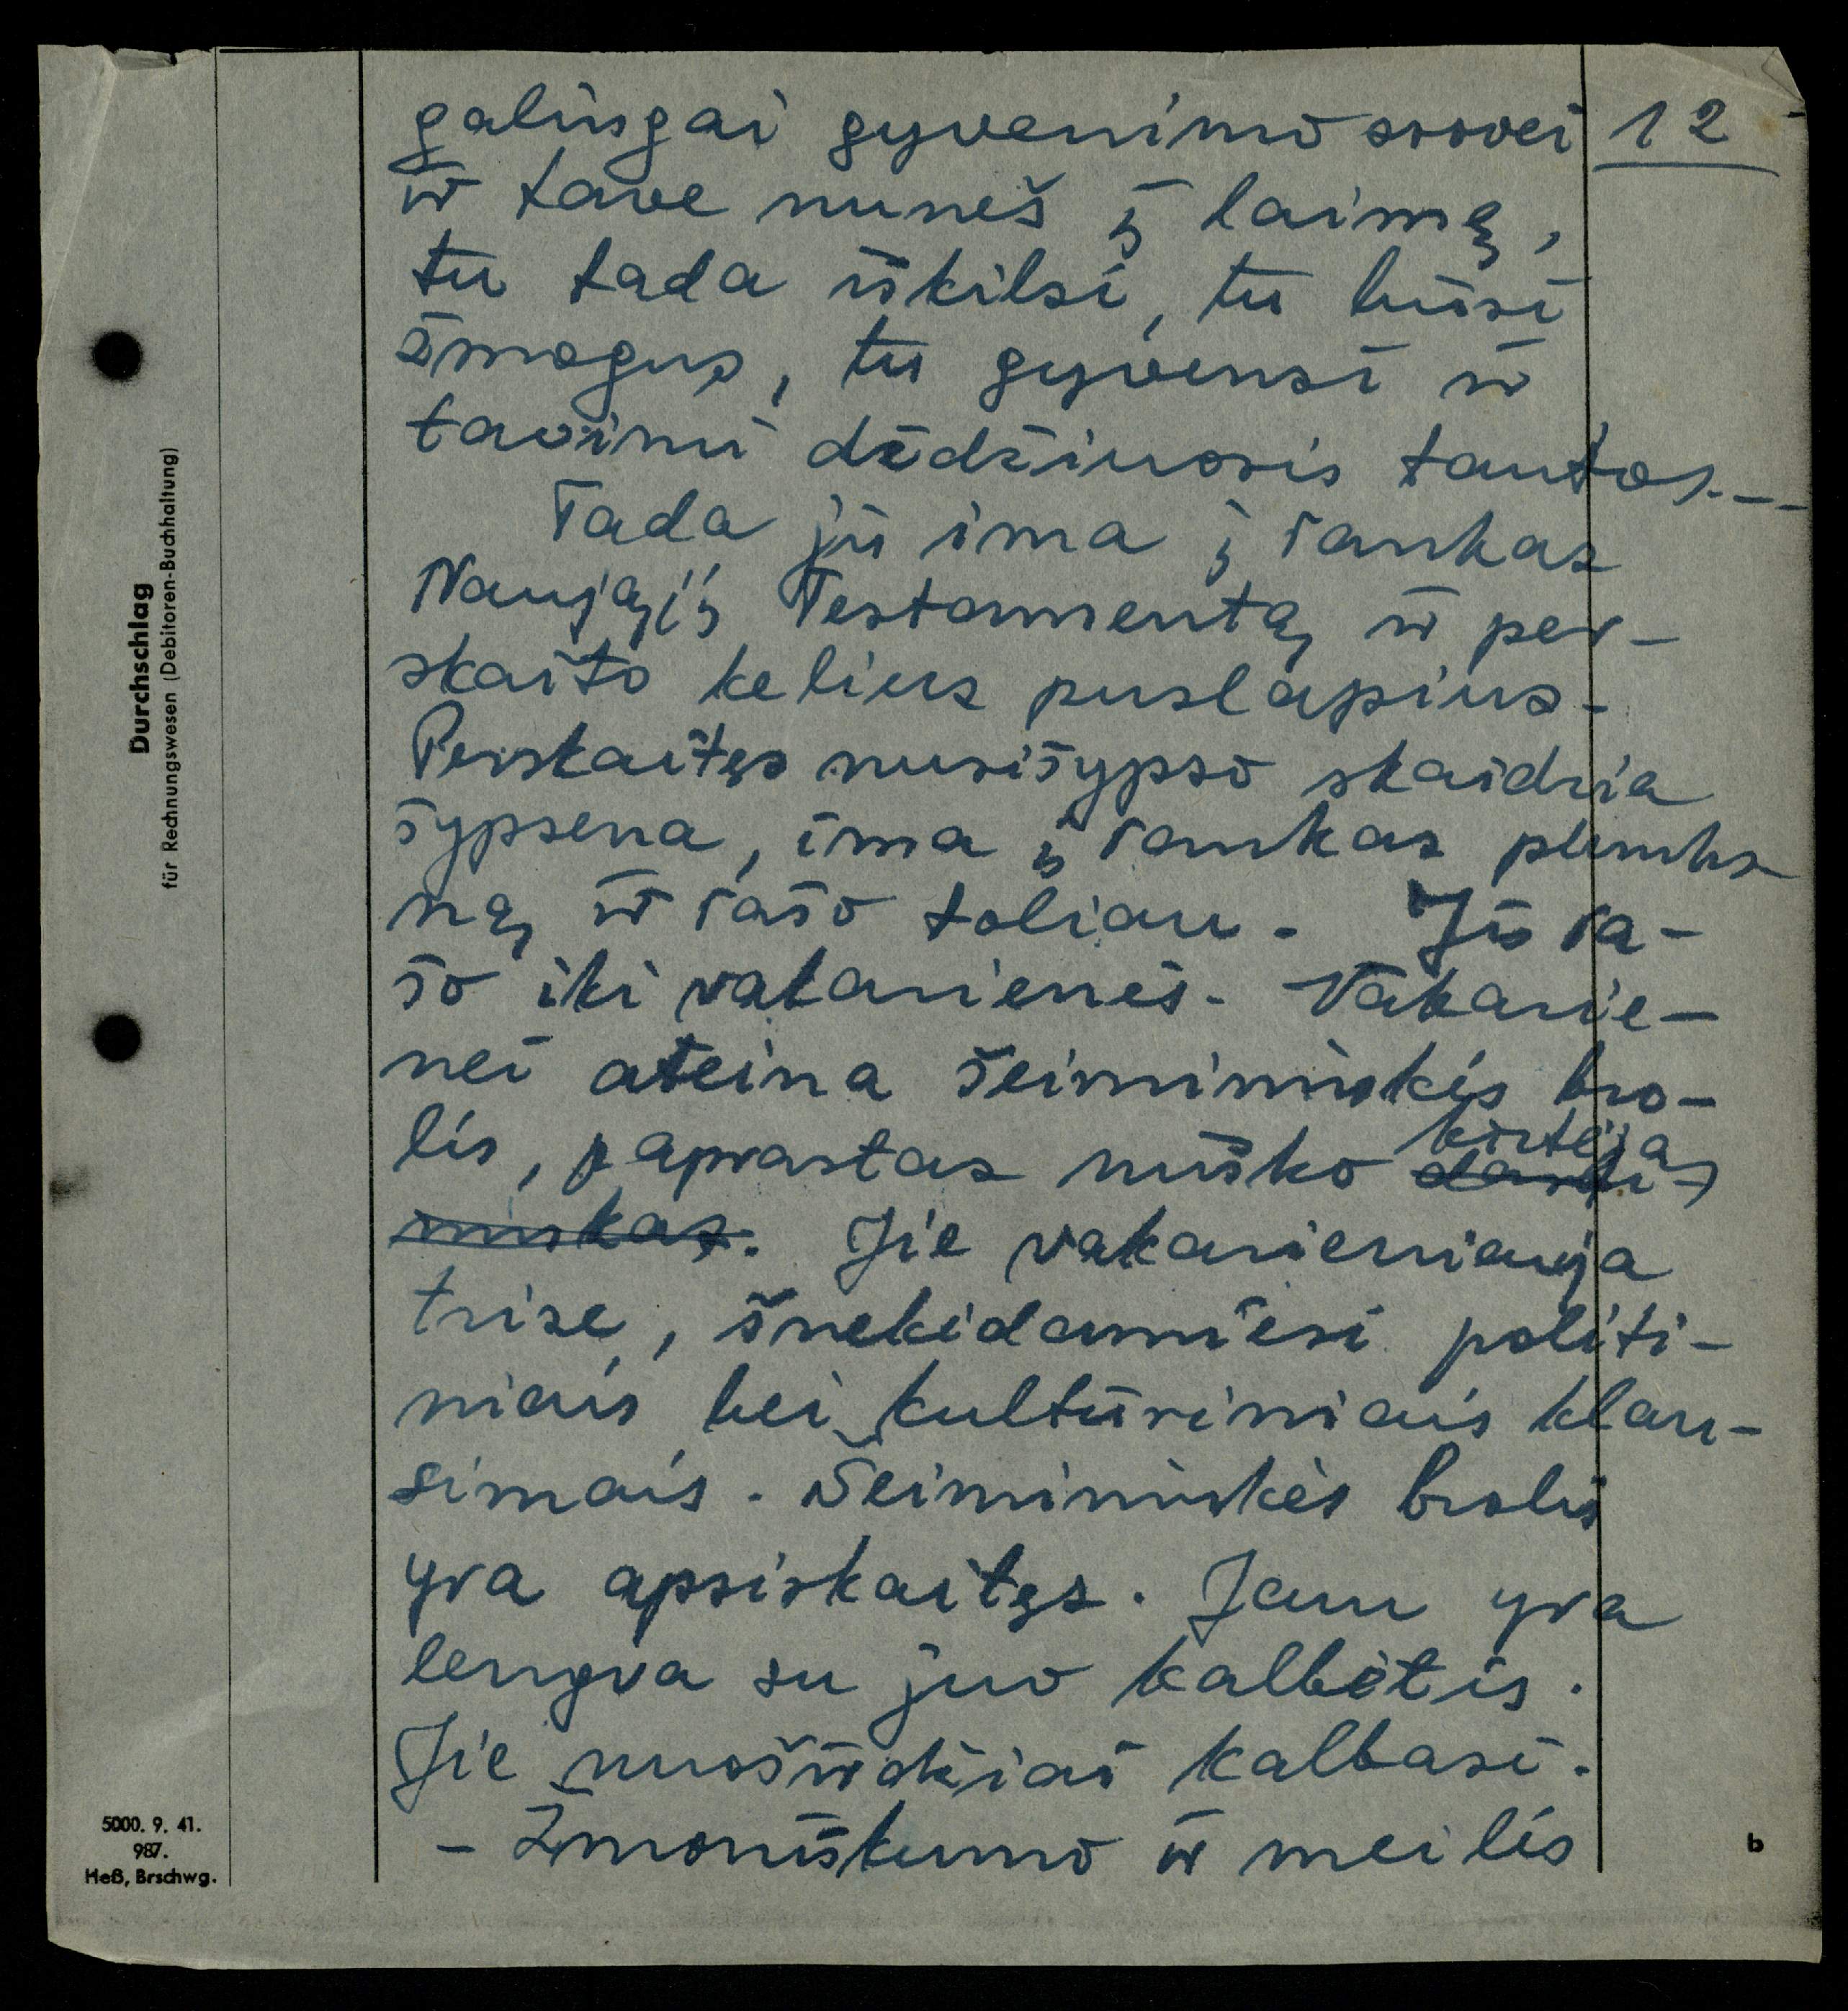 galingai gyvenimo srovei 12
ir tave nuneš į laimę,
tu tada iškilsi, tu būsi
žmogus, tu gyvensi ir
tavimi didžiuosis tautos.--
Tada jis ima į rankas
Naująjį Testamentą ir per-
skaito kelius puslapius.
Perskaitęs nusišypso skaidria
šypsena, ima į rankas plunks-
ną ir rašo toliau. Jis ra-
šo iki vakarienės. Vakarie-
nei ateina šeimininkės bro-
kirtėjas
lis, paprastas miško darbi-
ninkas. Jie vakarieniauja
trise, šnekėdamiesi politi-
niais bei kultūriniais klau-
simais. Šeimininkės brolis
yra apsiskaitęs. Jam yra
lengva su juo kalbėtis.
Jie nuoširdžiai kalbasi.
- Žmoniškumo ir meilės
Durchschlag
für Rechnungswesen (Debitoren-Buchhaltung)
5000. 9. 41.
987.
Heß, Brschwg.
b